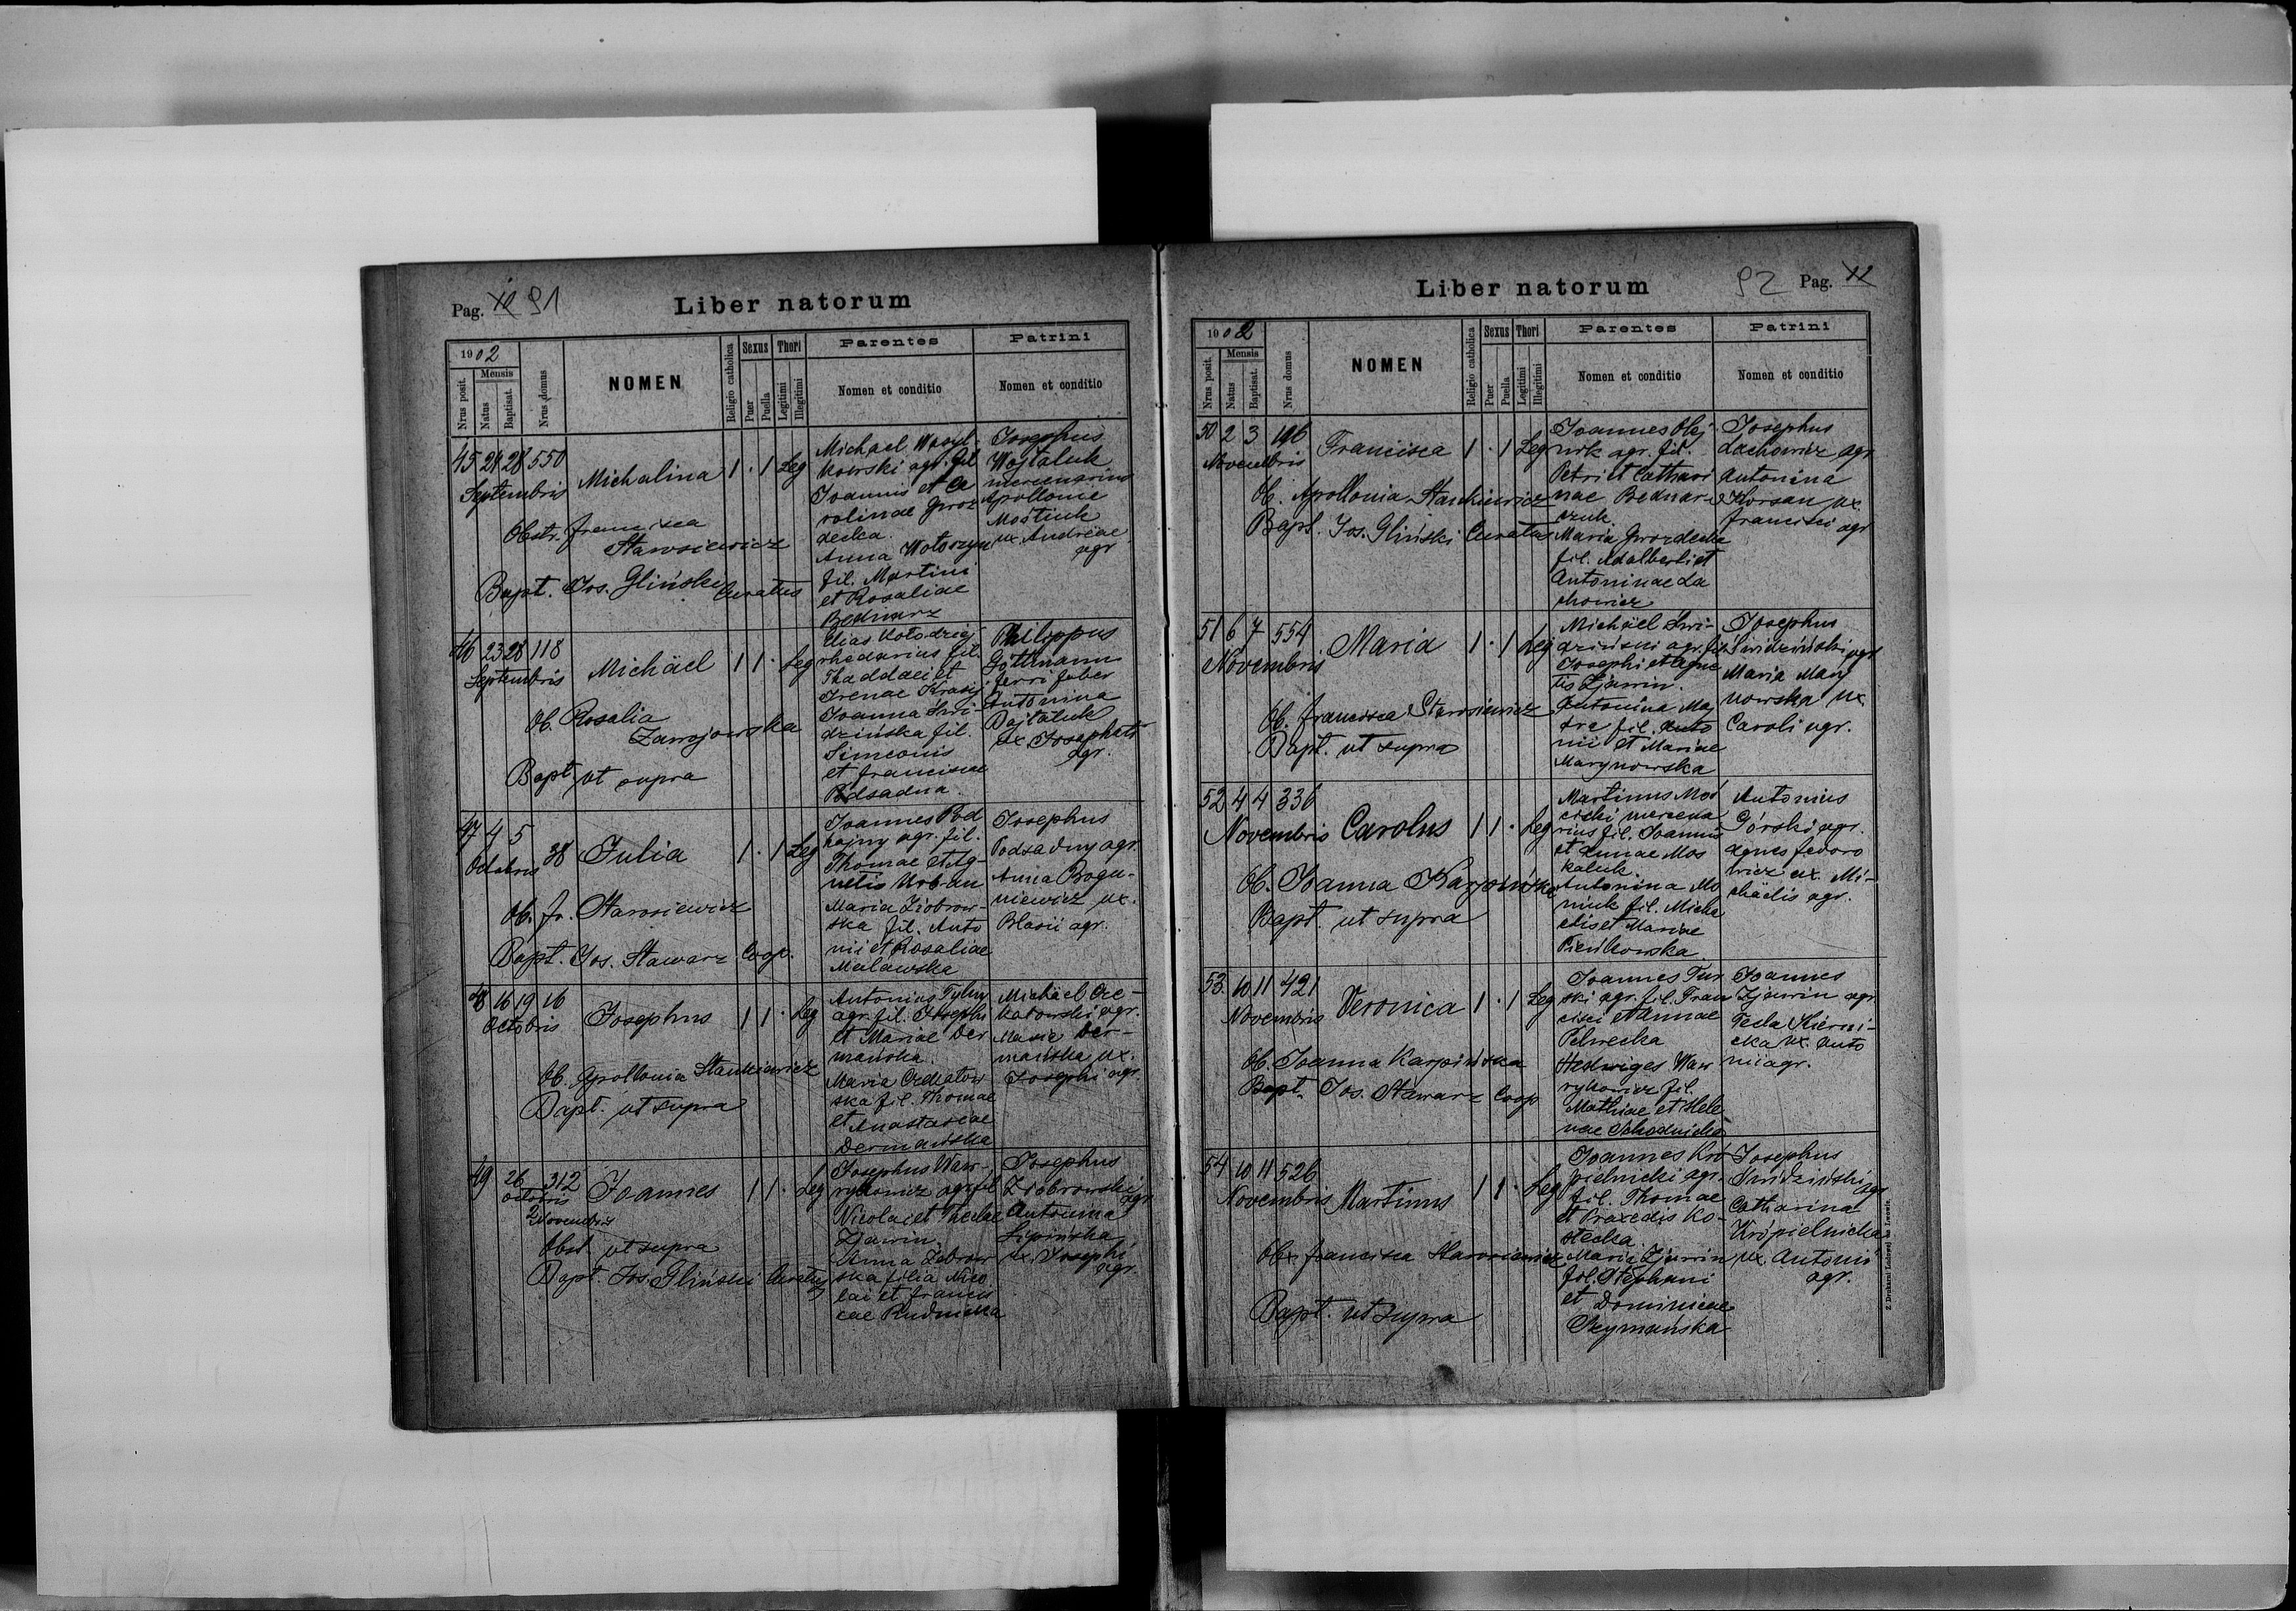 Pag. 91
Liber natorum
1902
Nrus posit.
Mensis
Natus
Baptisat.
Nrus domus
NOMEN
Religio catholica
Sexus
Puer
Puella
Thori
Legitimi
Illegitimi
Parentes
Nomen et conditio
Patrini
Nomen et conditio
45 24 28 550
Septembris
Michalina 1 · 1 Leg
Obstr. Francisca
Starosiewicz
Bapt. Jos. Gliński Curatus
Michael Wasyl-
kowski agr. fil
Joannis et Ca
rolinae Groz
decka.
Anna Wołoszyn
fil. Martini
et Rosaliae
Bednarz
Josephus
Wojtaluk
mercenarius
Apollonie
Mostiuk
ux. Andreae
agr
46 23 28 118
Septembris
Michäel 1 1 · Leg
Ob. Rosalia
Zawojowska
Bapt. ut supra
Elias Kołodziej
rhedarius fil.
Thaddaei et
Irenae Krasij
Joanna Swi-
dzińska fil.
Simeonis
et Franciscae
Podsadna.
Philippus
Göttmann
ferri faber
Antonina
Bojtaluk
ux Josephats
agr.
47 4 5
Octobris 38
Julia 1 · 1 Leg
Ob. Fr. Starosiewicz
Bapt. Jos. Stawarz Coop.
Joannes Pod
hajny agr. fil.
Thomae et Ag-
netis Urban
Maria Ziobrow
ska fil. Anto
nii et Rosaliae
Malawska
Josephus
Podsadny agr.
Anna Bogu-
niewicz ux.
Blasii agr.
48 16 19 16
Octobris
Josephus 1 1 · Leg
Ob. Apollonia Stankiewicz
Bapt. ut supra
Antonius Tylny
agr. fil. Josephi
et Mariae Der
mańska.
Maria Czekatow
ska fil. Thomae
et Anastasiae
Dermańska
Michäel Cze-
katowski agr.
Marie Der-
mańska ux.
Josephi agr.
49 26 312
Octobris
2 Novembris
Joannes 1 1 · Leg
Obst. ut supra
Bapt. Jos. Gliński Curatus
Josephus Waw-
rykowicz agr fil
Nicolai et Theclae
Zjawin.
Anna Zobrow
ska filia Nico
lai et Francis
cae Rudnicka
Josephus
Ziobrowski
agr
Antonina
Lipińska
ux. Josephi
agr.
Liber natorum
92 Pag.
1902
Nrus posit.
Mensis
Natus
Baptisat.
Nrus domus
NOMEN
Religio catholica
Sexus
Puer
Puella
Thori
Legitimi
Illegitimi
Parentes
Nomen et conditio
Patrini
Nomen et conditio
50 2 3 196
Novembris
Francisca 1 · 1 Leg
Ob. Apollonia Stankiewicz
Bapt. Jos. Gliński Curatus
Joannes Olej
nik agr. fil.
Petri et Cathari
nae Bednar-
czuk.
Maria Grozdecka
fil. Adalberti et
Antoninae La
chowicz
Josephus
Lachowicz agr
Antonina
Korsan ux
Francisci agr
51 6 7 554
Novembris
Maria 1 · 1 Leg
Ob. Francisca Starosiewicz
Bapt. ut supra
Michäel Swi-
dziński agr. fil
Josephi et Agne
tis Zjawin.
Antonina Maj
dra fil. Anto
nii et Mariae
Marynowska
Josephus
Swidziński agr
Maria Mary
nowska ux
Caroli agr.
52 4 4 336
Novembris
Carolus 1 1 · Leg
Ob. Joanna Karpińska
Bapt. ut supra
Martinus Moś
cicki mercena
rius fil. Joannis
et Annae Mos
kaluk.
Antonina Mo
niuk fil. Micha
elis et Mariae
Pieńkowska.
Antonius
Górski agr.
Agnes Fedoro
wicz ux. Mi-
chäelis agr.
53. 10 11 421
Novembris
Veronica 1 · 1 Leg
Ob. Joanna Karpińska
Bapt. Jos. Stawarz Coop
Joannes Tur
ski agr. fil. Fran
cisci et Annae
Pelwecka
Hedwiges Waw
rykowicz fil.
Mathiae et Hele
nae Schodnicka
Joannes
Zjawin agr.
Tecla Skierni-
cka ux. Anto
nii agr.
54 10 11 526
Novembris
Martinus 1 1 · Leg
Obs Francisca Starosiewicz
Bapt. ut supra
Joannes Kro
pielnicki agr.
fil. Thomae
et Praxedis Ko-
stecka.
Maria Zjawin
fil. Stephani
et Dominicae
Szymańska
Josephus
Swidziński
agr
Catharina
Kropielnicka
ux. Antonii
agr.
Z Drukarni Ludowej we Lwowie.